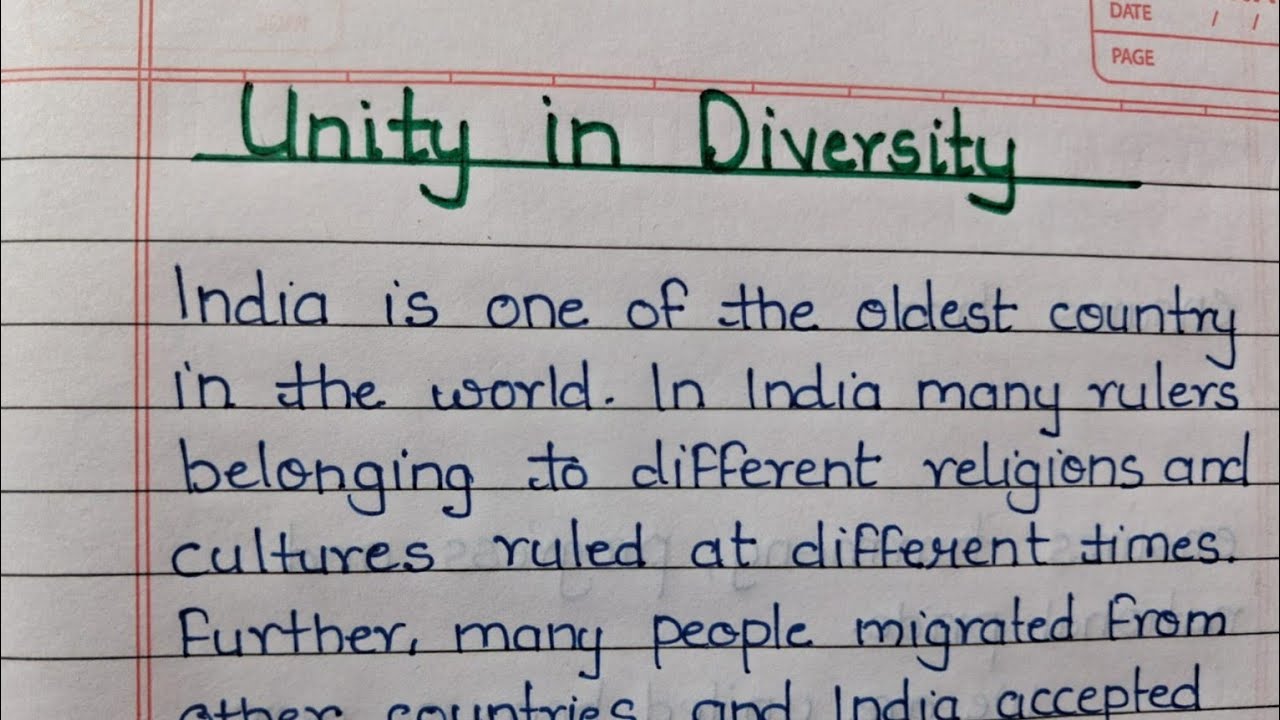 DATE / /
PAGE
Unity in Diversity
India is one of the oldest country
in the world. In India many rulers
belonging to different religions and
cultures ruled at different times.
Further, many people migrated from
other countries and India accepted